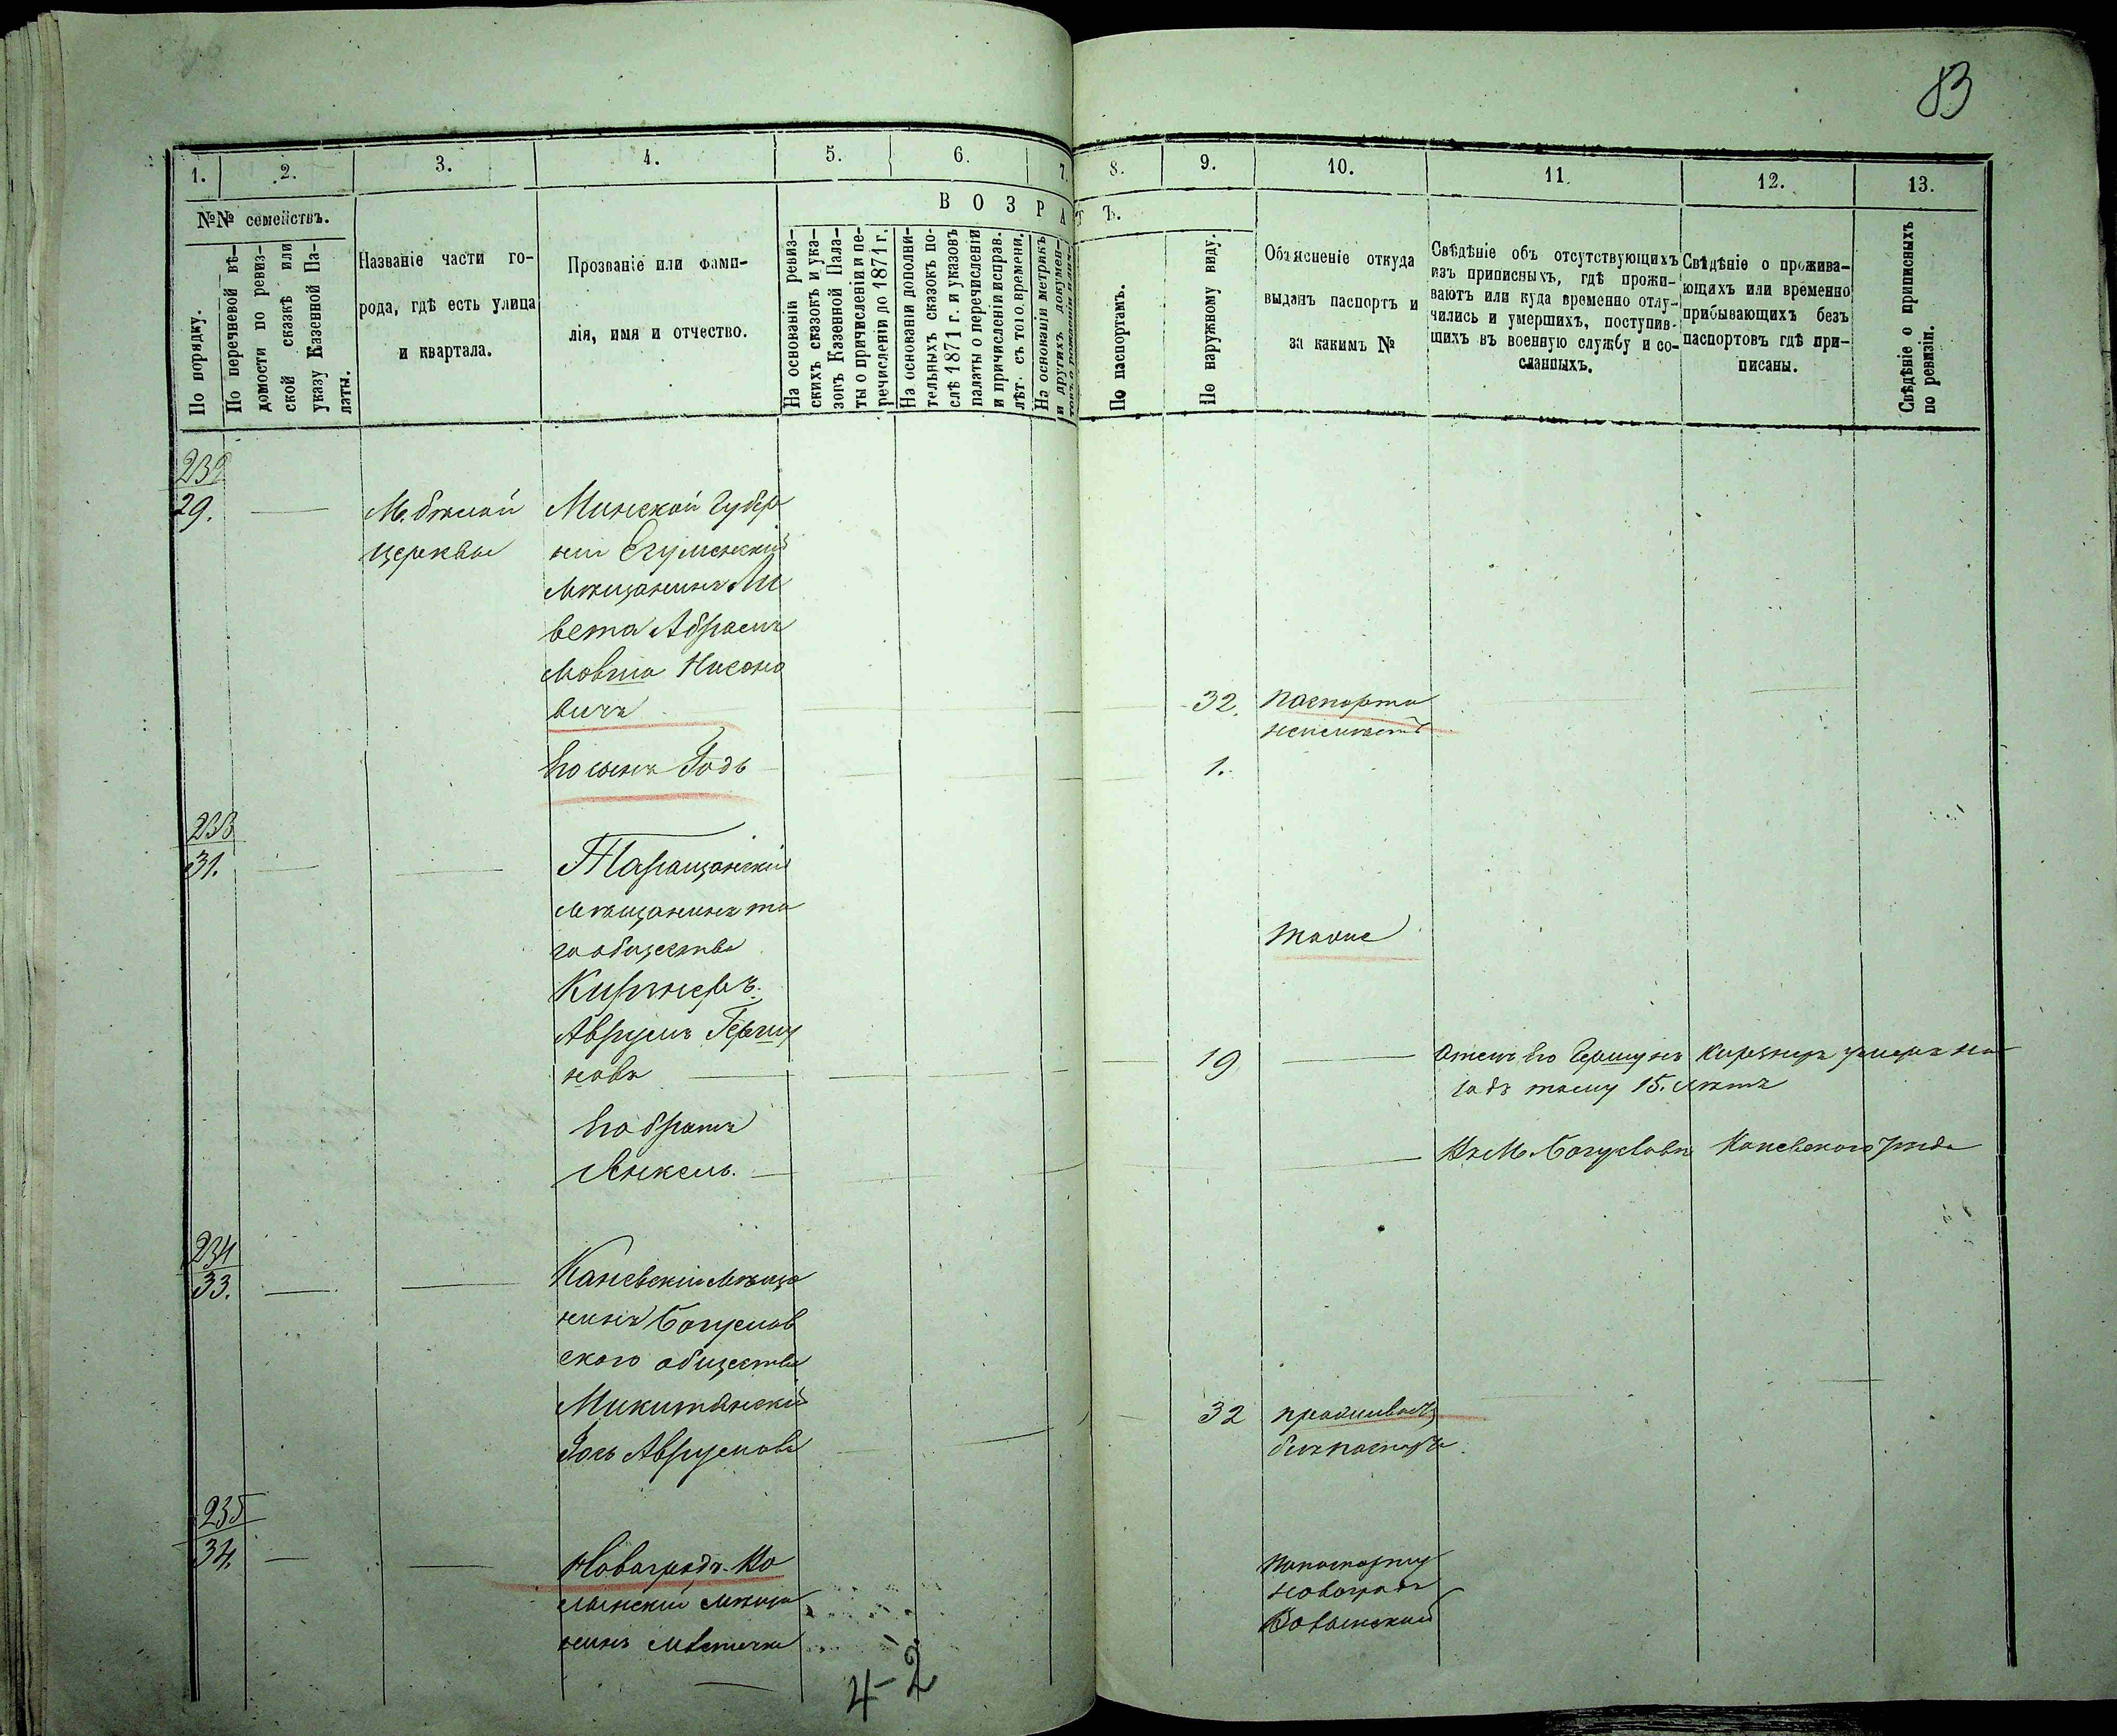 83
1. 2. 3. 4. 5. 6. 7. 8. 9. 10. 11. 12. 13.
№№ семействъ.
В О З Р А Т Ъ.
По порядку.
По перечневой вѣ-
домости по ревиз-
ской сказкѣ или
указу Казенной Па-
латы.
Названіе части го-
рода, гдѣ есть улица
и квартала.
Прозваніе или фами-
лія, имя и отчество.
На основаніи ревиз-
скихъ сказокъ и ука-
зовъ Казенной Пала-
ты о причисленіи и пе-
речисленіи до 1871 г.
На основаніи дополни-
тельныхъ сказокъ по-
слѣ 1871 г. и указовъ
палаты о перечисленіи
и причисленіи исправ.
лѣт. съ того времени.
На основаніи метрикъ
и другихъ докумен-
товъ о рожденіи
По паспортамъ.
По наружному виду.
Объясненіе откуда
выданъ паспортъ и
за какимъ №
Свѣдѣніе объ отсутствующихъ
изъ приписныхъ, гдѣ прожи-
ваютъ или куда временно отлу-
чились и умершихъ, поступив-
шихъ въ военную службу и со-
сланныхъ.
Свѣдѣніе о прожива-
ющихъ или временно
прибывающихъ безъ
паспортовъ гдѣ при-
писаны.
Свѣдѣніе о приписныхъ
по ревизіи.
232
29.
М. Бѣлой
Церкви
Минской Губер
ніи Егуменскій
Мѣщанинъ
Абрамъ
Мовша Нисоно
вичъ
32.
паспорта
неимѣетъ
Его сынъ
1.
233
31.
Таращанскій
Мѣщанинъ то
го общества
Киржнеръ
Аврумъ Гершу
новъ
тоже
19
Отецъ его Гершунъ Киржнеръ умеръ на
задъ тому 15. лѣтъ
Его братъ
Янкель.
Въ М. Богуславѣ Каневского уѣзда
234
33.
Каневскій Мѣща
нинъ Богуслав
ского общества
Микитянскій
Аврумовъ
32
проживаетъ
безъ паспорта
235
34.
Новоградъ-Во
лынскій мѣща
нинъ мѣстечка
Попаспорту
Новоградъ
Волынский
4-2